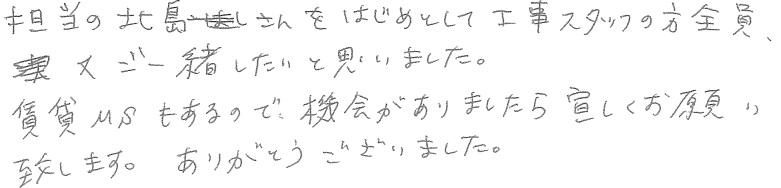 担当の北島さんをはじめとして工事スタッフの方全員、
又ご一緒したいと思いました。
賃貸MSもあるので、機会がありましたら宜しくお願い
致します。ありがとうございました。